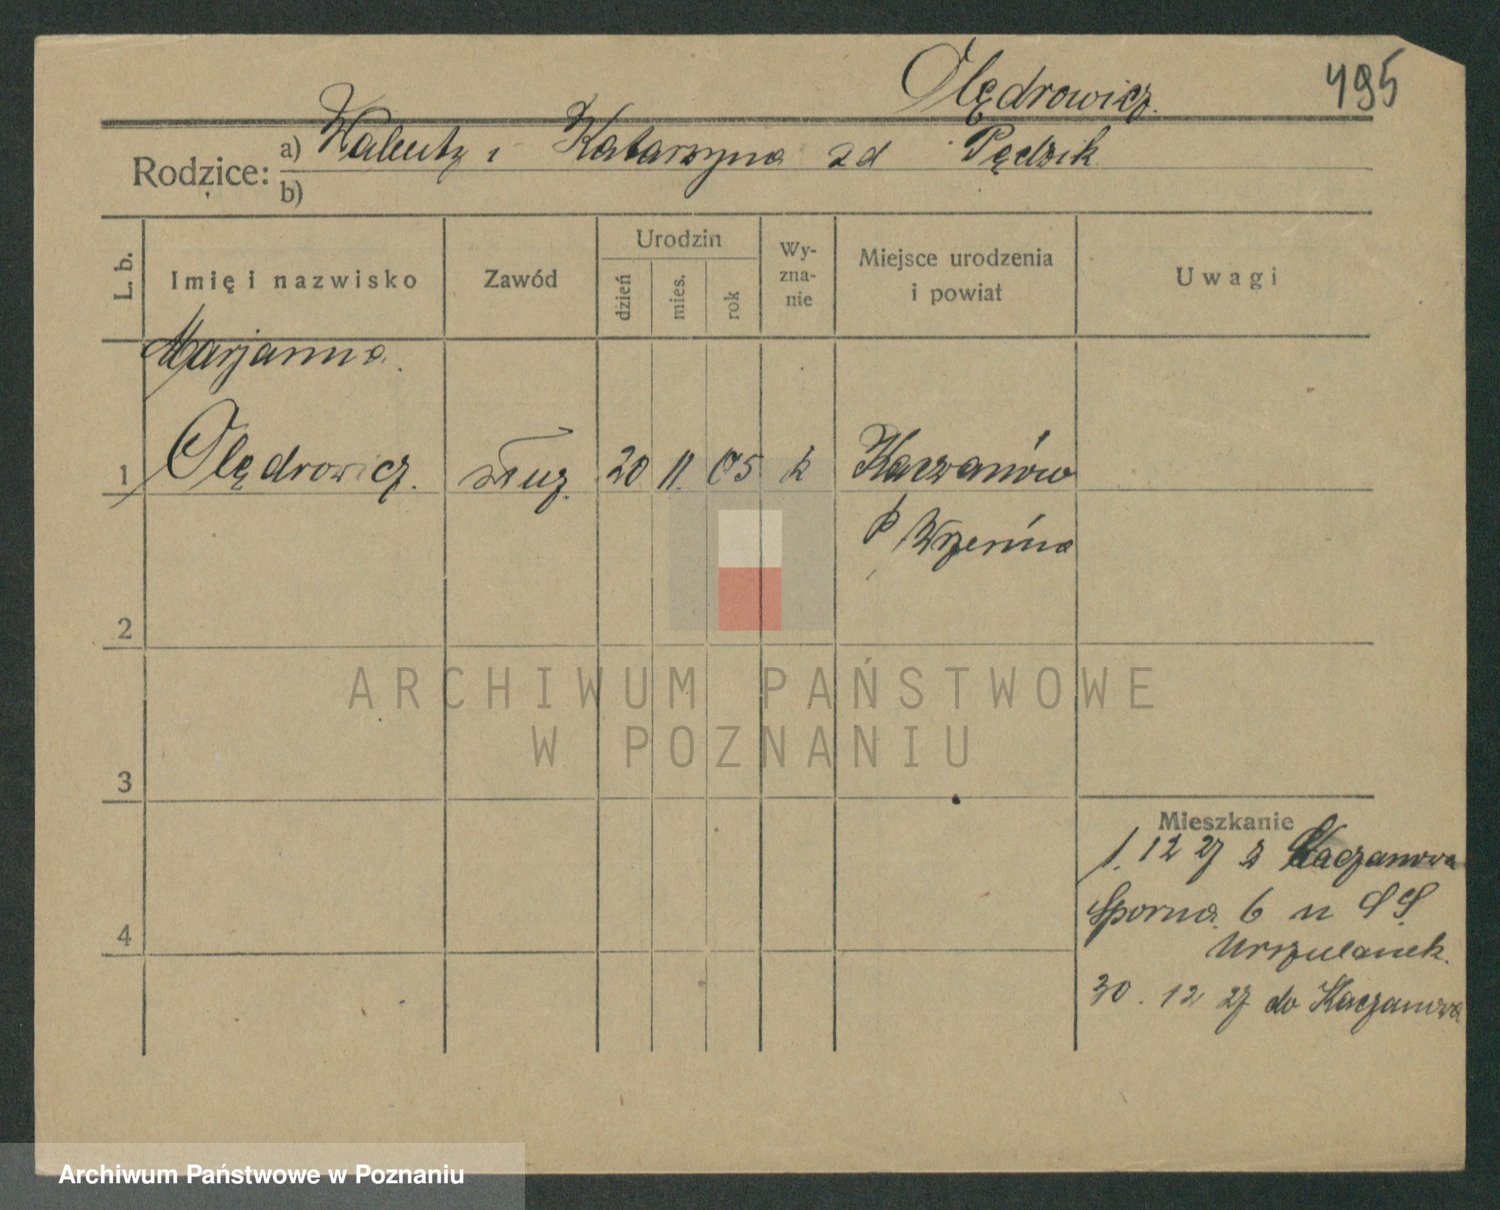 Olędrowicz.
495
Rodzice: a) Walenty i Katarzyna zd Pędzik
b)
L. b.
Imię i nazwisko
Zawód
Urodzin
dzień
mies.
rok
Wy-
zna-
nie
Miejsce urodzenia
i powiat
Uwagi
Marjanna.
1 Olędrowicz. służ. 20 11. 05 k Kaczanów
p Września
2
3
4
Mieszkanie
1. 12 27 z Kaczanowa
Sporna 6 u S.S.
Urszulanek.
30. 12 27 do Kaczanowa
ARCHIWUM PAŃSTWOWE
W POZNANIU
Archiwum Państwowe w Poznaniu